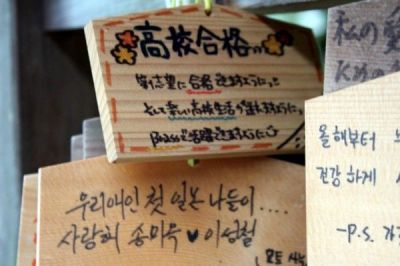 高校合格
第1志望に合格できますように。
そして楽しい高校生活が送れますように。
で活躍できますように
私の
올해부터
건강하게
-p.s.
우리애인 첫 일본 나들이....
사랑해 송미옥 ♥ 이성철